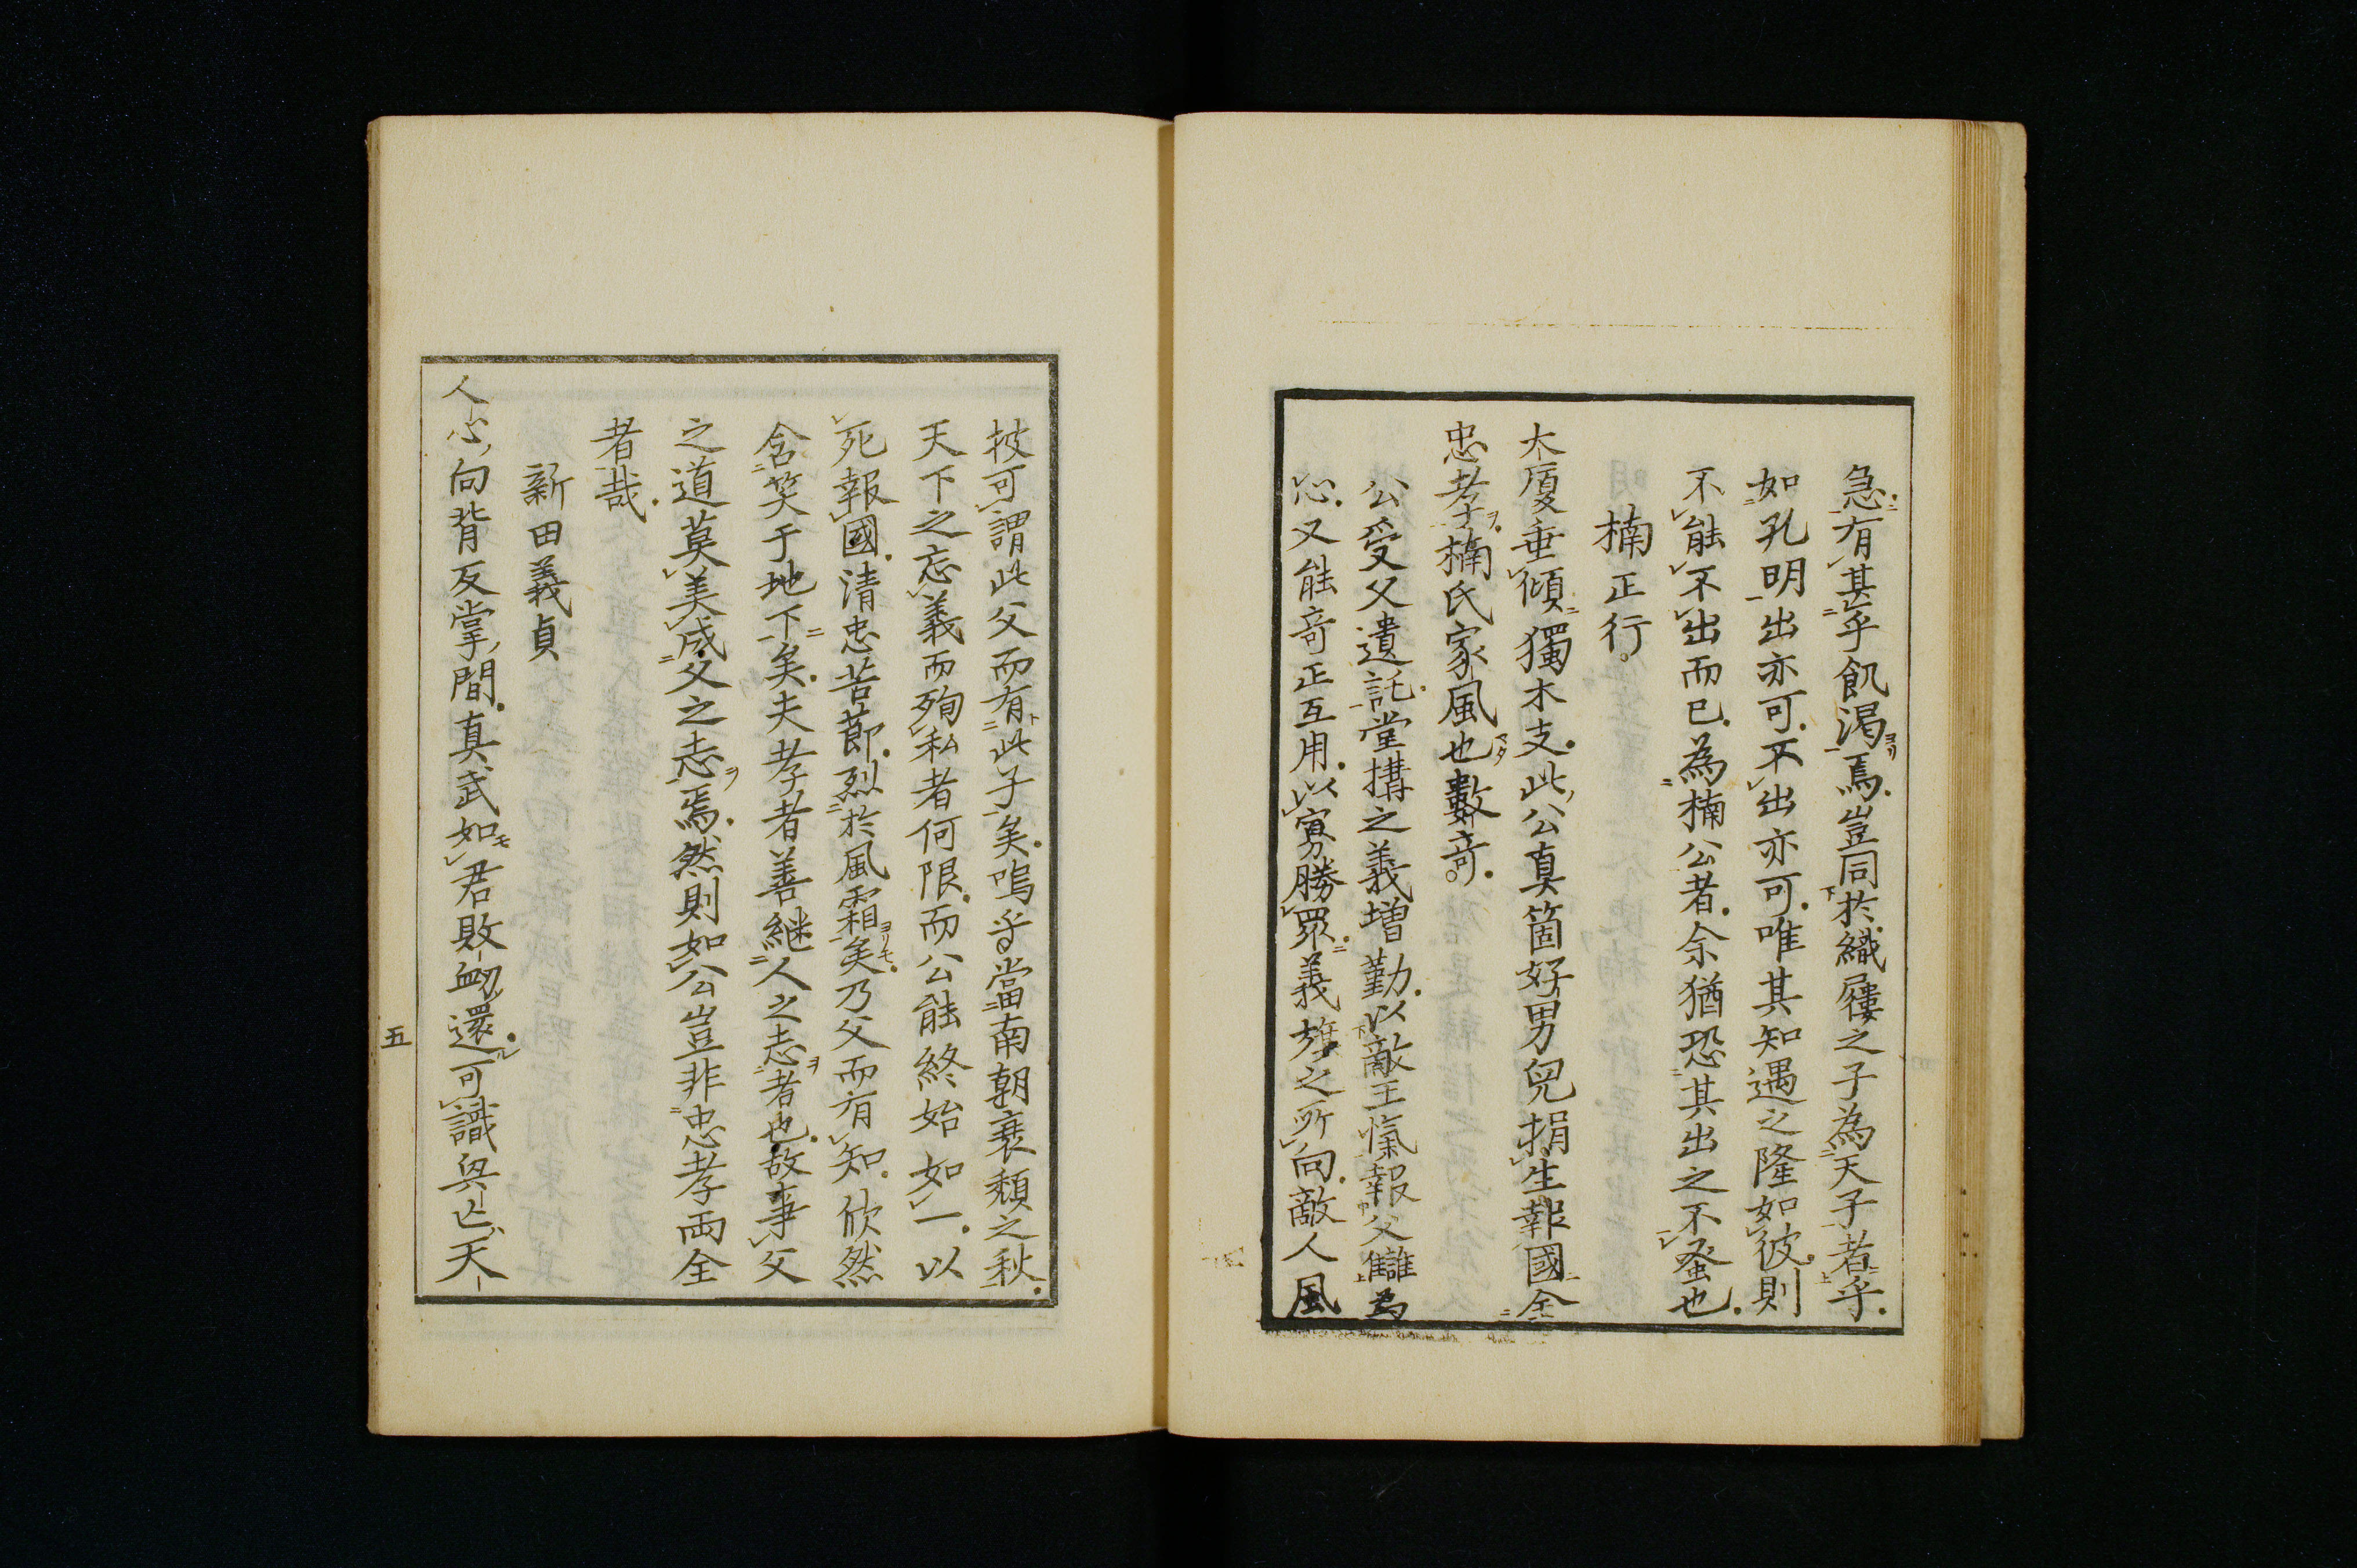 急有甚乎飢渴焉豈同於織屨之子為天子者乎
如孔明出亦可不出亦可唯其知遇之隆如彼則
不能不出而已為楠公者余猶恐其出之不蚤也
楠正行
大厦垂傾獨木支此公真箇好男兒捐生報國全
忠孝楠氏家風也數奇
公受父遺託堂搆之義增勤以敵王愾報父讎為
心又能奇正互用以寡勝眾義旗之所向敵人風
披可謂此父而有此子矣嗚乎當南朝衰頹之秋
天下之忘義而殉私者何限而公能終始如一以
死報國清忠苦節烈於風霜矣乃父而有知欣然
含笑于地下矣夫孝者善継人之志者也故事父
之道莫美成父之志焉然則如公豈非忠孝兩全
者哉
新田義貞
人心向背反掌間真武如君敗衂還可識興亡天
五